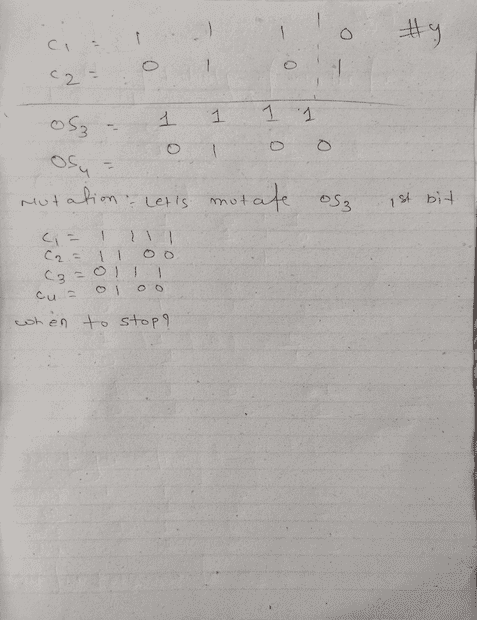 C1 = 1 1 1 0 #4
C2 = 0 1 0 1
OS3 = 1 1 1 1
OS4 = 0 1 0 0
Mutation: Let's mutate OS3 1st bit
C1 = 1 1 1 1
C2 = 1 1 0 0
C3 = 0 1 1 1
C4 = 0 1 0 0
when to stop?